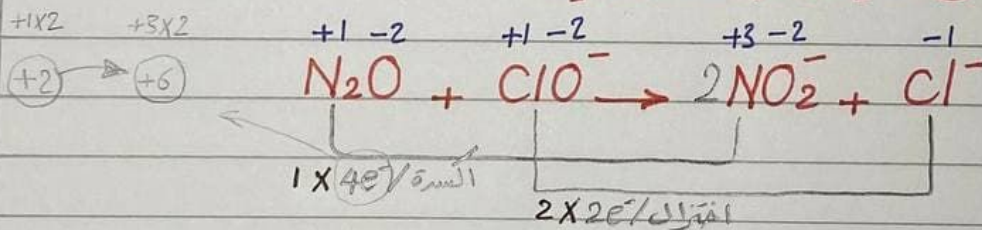 +1x2 +3x2 +1 -2 +1 -2 +3 -2 -1
+2 → +6 N₂O + ClO⁻ → 2NO₂⁻ + Cl⁻
1 x 4e⁻/اكسدة
2 x 2e⁻/اختزال